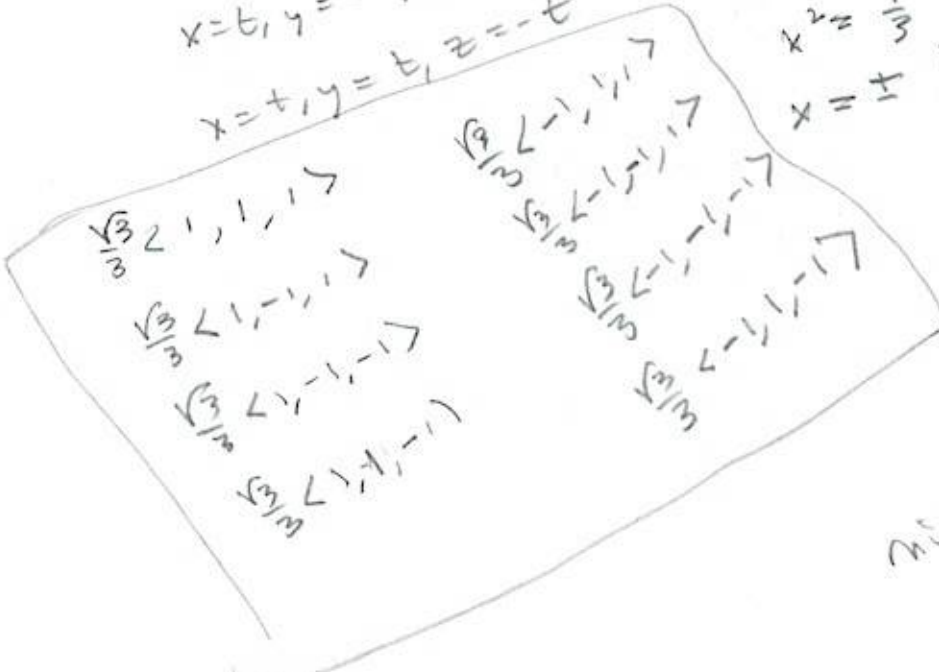 x=t, y=
x=t, y=t, z=-t
x² = 1/3
x = ±
√3/3 <1, 1, 1>
√3/3 <1, -1, 1>
√3/3 <1, -1, -1>
√3/3 <1, 1, -1>
√3/3 <-1, 1, 1>
√3/3 <-1, -1, 1>
√3/3 <-1, -1, -1>
√3/3 <-1, 1, -1>